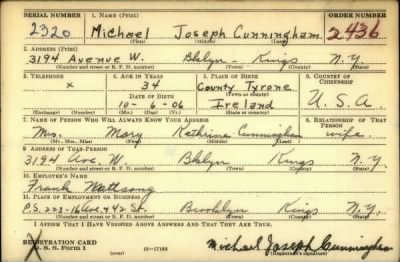 SERIAL NUMBER 1. NAME (Print) ORDER NUMBER
2320 Michael Joseph Cunningham 2436
(First) (Middle) (Last)
2. ADDRESS (Print)
3194 Avenue W. Bklyn - Kings N.Y.
(Number and street or R. F. D. number) (Town) (County) (State)
3. TELEPHONE 4. AGE IN YEARS 5. PLACE OF BIRTH 6. COUNTRY OF CITIZENSHIP
x 34 County Tyrone
(Town or county)
DATE OF BIRTH
10-6-06 Ireland U.S.A.
(Exchange) (Number) (Mo.) (Day) (Yr.) (State or country)
7. NAME OF PERSON WHO WILL ALWAYS KNOW YOUR ADDRESS 8. RELATIONSHIP OF THAT PERSON
Mrs. Mary Kathrine Cunningham wife
(Mr., Mrs., Miss) (First) (Middle) (Last)
9. ADDRESS OF THAT PERSON
3194 Ave. W. Bklyn Kings N.Y.
(Number and street or R. F. D. number) (Town) (County) (State)
10. EMPLOYER'S NAME
Frank
11. PLACE OF EMPLOYMENT OR BUSINESS
P.S. 223-16 Ave, + 42 St. Brooklyn Kings N.Y.
(Number and street or R. F. D. number) (Town) (County) (State)
I AFFIRM THAT I HAVE VERIFIED ABOVE ANSWERS AND THAT THEY ARE TRUE.
REGISTRATION CARD
D. S. S. Form 1 (over) 16-17105 Michael Joseph Cunningham